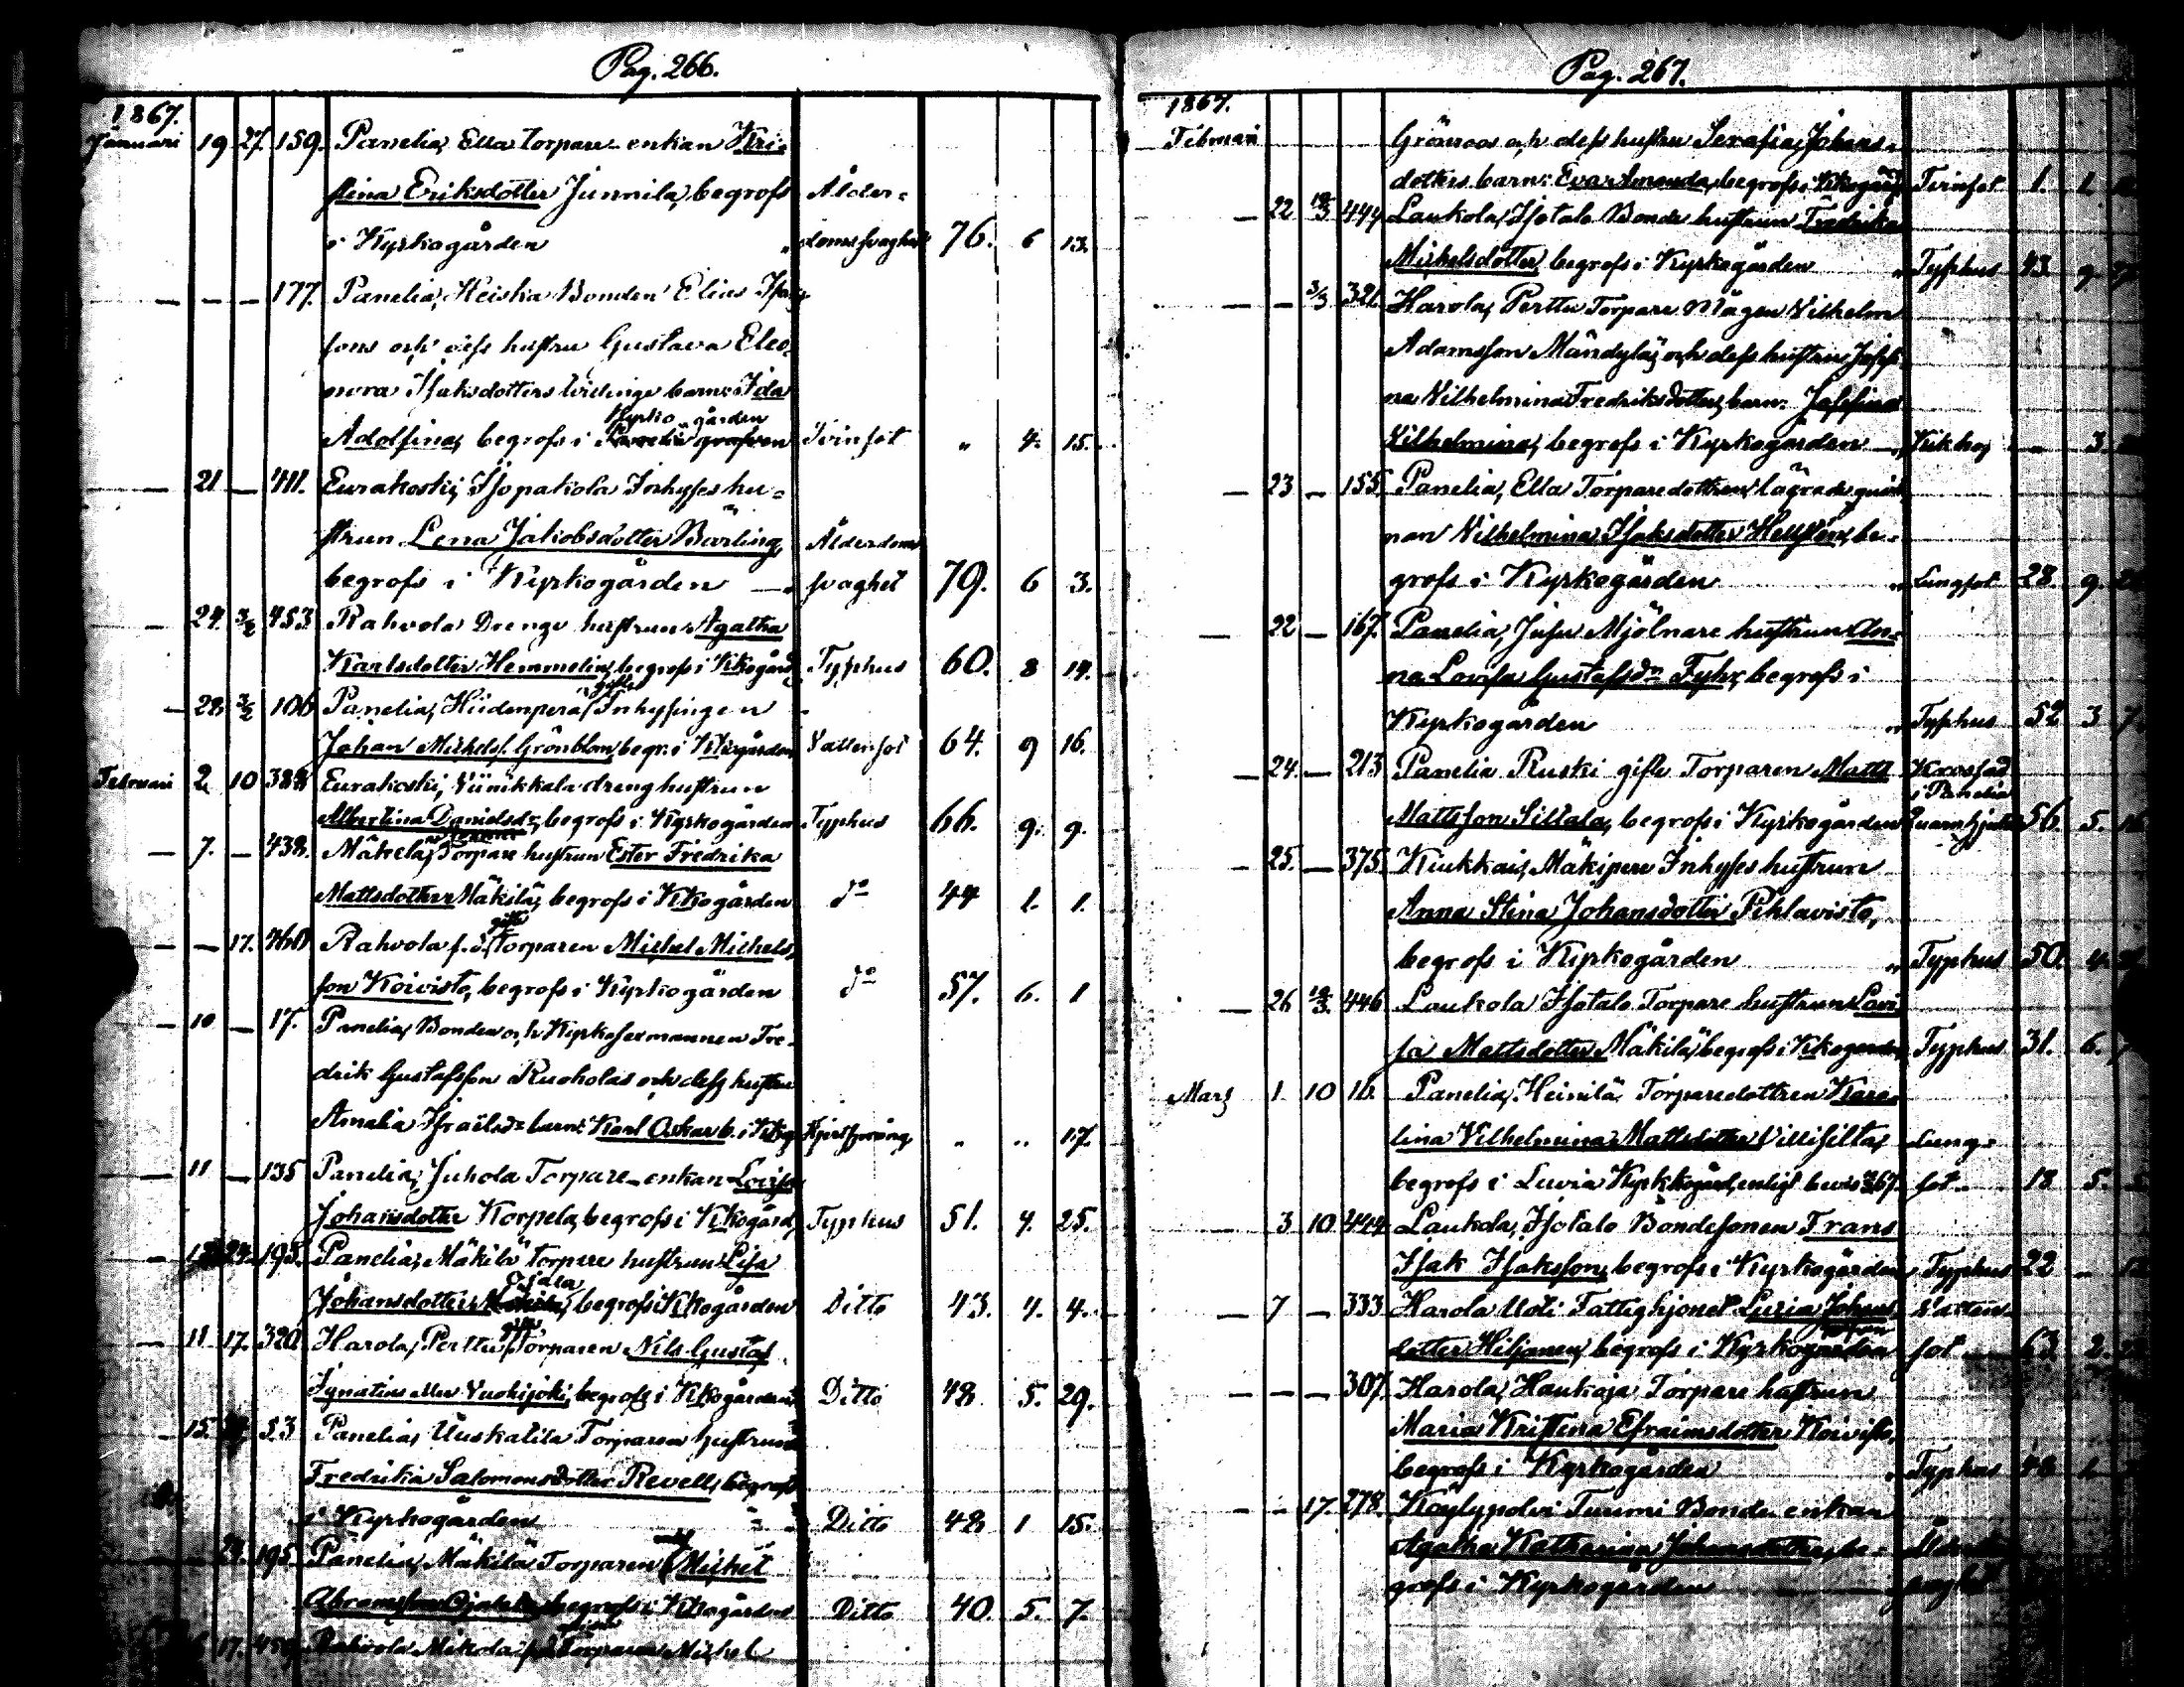 Pag. 266.
1867.
Januari 19 27. 159. Panelia, Ella torpare-enkan Kri-
stina Eriksdotter Junnila, begrofs Ålder-
i Kyrkogården domssvaghet 76. 6 13.
— — — 177. Panelia, Heiska Bonden Elias Isaks-
sons och dess hustru Gustava Eleo-
nora Isaksdotters tvillinge barn: Ida
Kyrko-gården
Adolfina, begrofs i Panelia grafven Tvinsot " 4. 15.
— 21 — 411. Eurakoski, Isopakola Inhyses hu-
strun Lena Jakobsdotter Bärling, Ålderdoms
begrofs i Kyrkogården — svaghet 79. 6 3.
— 24. 3/2 453 Rahvola Drenge hustrun Agatha
Karlsdotter Hemmelin, begrofs i Kkogård Typhus 60. 8 14.
gifte
— 28. 3/2 106 Panelia, Hiidenperä Inhysingen
Johan Michelss. Grönblom, begr. i Kkogården Vattensot 64. 9 16.
Februari 2 10 388 Eurakoski, Viinikkala dreng hustrun
Albertina Danielsdr, begrofs i Kyrkogården Typhus 66. 9. 9.
— 7. — 438. Mäkelä, Torpare hustrun Ester Fredrika
Mattsdotter Mäkilä, begrofs i Kkogården do 44 1. 1.
gifte
— — 17. Rahvola f.d. torparen Michel Michels-
son Koivisto, begrofs i Kyrkogården do 57. 6. 1
— 10 — 17. Panelia, Bonden och Kyrkosexmannen Fre-
drik Gustafsson Ruoholas och dess hustru
Amalia Israelsdr barn: Karl Oskar b. i Kkog. " " 17.
— 11 — 135 Panelia, Juhola Torpare-enkan Lovisa
Johansdotter Korpela, begrofs i Kkogård, Typhus 51. 4. 25.
— 24. 195. Panelia, Mäkilä torpare hustrun Lisa
Ojala
Johansdotter Mäkilä, begrofs i Kkogården Ditto 43. 4. 4.
— 11 17. 320. Harola, Perttu Torparen Nils Gustaf
Ignatius Vuohijoki, begrofs i Kkogården Ditto 48 5. 29.
— 15. 53 Panelia, Uuskalila Torparen hustrun
Fredrika Salomonsdotter Revell, begrofs
i Kyrkogården Ditto 48 1 15.
24. 195 Panelia, Mäkilä Torparen Michel
Abramsson Ojala, begrofs i Kkogården Ditto 40. 5. 7.
17. 459. Rahvola Mikola Torparen Michel
Pag. 267.
1867.
Februari Grönroos och dess hustru Serafia Johans-
dotters barn: Eva Amanda, begrofs i Kkogård Tvinsot 1. 1.
— 22 10/3 444 Laukola, Isotalo Bonde hustrun Fredrika
Michelsdotter, begrofs i Kyrkogården Typhus 43. 9.
— — 3/3 321. Harola, Perttu Torpare Mågen Vilhelm
Adamsson Mändylä, och dess hustru Josefi-
na Vilhelmina Fredriksdotters, barn: Josefina
Vilhelmina, begrofs i Kyrkogården — Kikhos — 3.
— 23 — 155 Panelia, Ella Torparedottren lägrade qvin-
nan Vilhelmina Isaksdotter Hellstén, be-
grofs i Kyrkogården Lungsot 28. 9.
— 22 — 167. Panelia, Jusu Mjölnare hustrun An-
na Lovisa Gustafsdr Fyhr, begrofs i
Kyrkogården Typhus 52 3 7
— 24. — 213 Panelia Ruski gifte Torparen Matts Krossad
i Panelia
Mattsson Sillala, begrofs i Kyrkogården 56. 5.
— 25. — 375. Kiukkais, Mäkipere Inhyses hustrun
Anna Stina Johansdotter Pihlavisto,
begrofs i Kyrkogården Typhus 50. 4.
— 26 10/3. 446 Laukola Isotalo Torpare hustrun Lovi-
sa Mattsdotter Mäkilä, begrofs i Kkogården Typhus 31. 6.
Mars 1 10 16. Panelia, Heinilä Torparedottren Karo-
lina Vilhelmina Mattsdotter Villisilta, Lung-
begrofs i Luvia Kyrkkogård, enligt bevis sot 18 5.
— 3 10 444 Laukola, Isotalo Bondesonen Frans
Isak Isaksson, begrofs i Kyrkogården Typhus 22 —
— 7 — 333 Harola Uoti Fattighjonet Lusia Johans- Vatten-
dotter Hiljanen, begrofs i Kyrkogården sot 63. 2.
— — — 307. Harola, Haukoja Torpare hustrun
Maria Kristina Efraimsdotter Koivisto,
begrofs i Kyrkogården Typhus 48
— — 17. 278. Köylypolvi Tuomi Bonde enkan
Agatha Katharina Johansdotter, be-
grofs i Kyrkogården